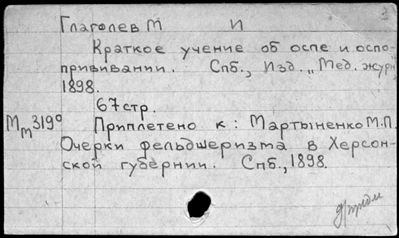 Глаголев М И
Краткое учение об оспе и оспо-
прививании. Спб., Изд. „Мед. журн
1898.
67 стр.
Мm319° Приплетено к: Мартыненко М.П.
Очерки фельдшеризма в Херсон-
ской губернии. Спб., 1898.